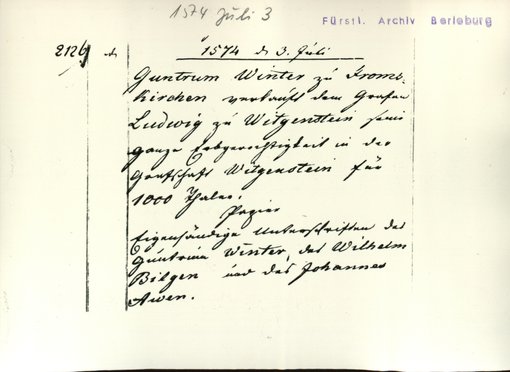 1574 Juli 3
Fürstl. Archiv Berleburg
2126 1574 d. 3. Juli
Guntrum Winter zu Froms-
kirchen verkauft dem Grafen
Ludwig zu Witgenstein seine
ganze Erbgerechtigkeit in der
Grafschaft Witgenstein für
1000 Thaler.
Papier
Eigenhändige Unterschriften des
Guntrum Winter, des Wilhelm
Bilgen und des Johannes
Awen.